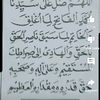 اللهم صل على سيدنا
محمد الفاتح لما أغلق
والخاتم لما سبق ناصر الحق
بالحق والهادي إلى صراطك
المستقيم وعلى آله
حق قدره ومقداره العظيم